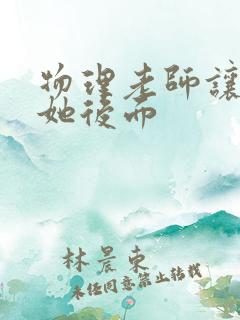 物理老師讓
她後而
林晨東
未经同意禁止转载